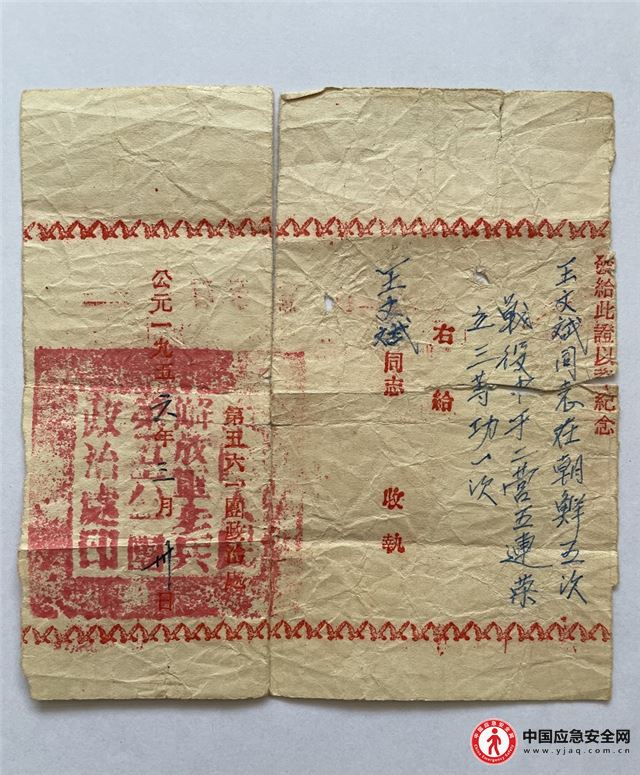 發給此證以紀念
王文斌同志在朝鮮五次
戰役中于二營五連榮
立三等功一次
右給
王文斌同志 收執
第五六一團政治處
公元一九五六年三月卅日
解放軍步兵
政治處印
中国应急安全网
www.yjaq.com.cn